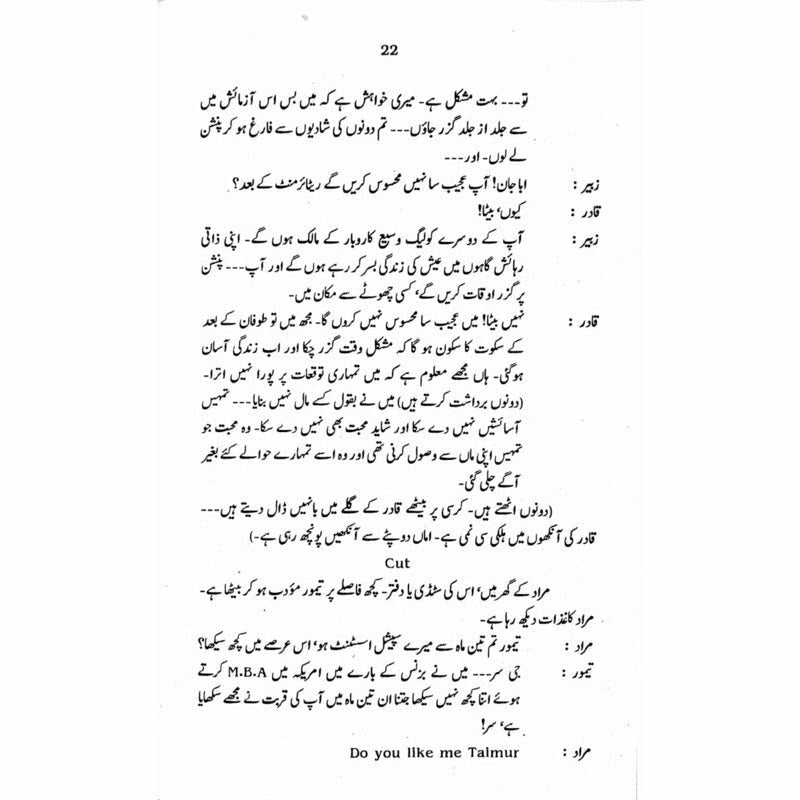 22
تو--- بہت مشکل ہے- میری خواہش ہے کہ میں بس اس آزمائش میں
سے جلد از جلد گزر جاؤں--- تم دونوں کی شادیوں سے فارغ ہو کر پنشن
لے لوں- اور---
زبیر : ابا جان! آپ عجیب سا نہیں محسوس کریں گے ریٹائرمنٹ کے بعد؟
قادر : کیوں، بیٹا!
زبیر : آپ کے دوسرے کولیگ وسیع کاروبار کے مالک ہوں گے- اپنی ذاتی
رہائش گاہوں میں عیش کی زندگی بسر کر رہے ہوں گے اور آپ--- پنشن
پر گزر اوقات کریں گے، کسی چھوٹے سے مکان میں-
قادر : نہیں بیٹا! میں عجیب سا محسوس نہیں کروں گا- مجھ میں تو طوفان کے بعد
کے سکوت کا سکون ہو گا کہ مشکل وقت گزر چکا اور اب زندگی آسان
ہوگئی- ہاں مجھے معلوم ہے کہ میں تمہاری توقعات پر پورا نہیں اترا-
(دونوں برداشت کرتے ہیں) میں نے بقول کسے مال نہیں بنایا--- تمہیں
آسائشیں نہیں دے سکا اور شاید محبت بھی نہیں دے سکا- وہ محبت جو
تمہیں اپنی ماں سے وصول کرنی تھی اور وہ اسے تمہارے حوالے کئے بغیر
آگے چلی گئی-
(دونوں اٹھتے ہیں- کرسی پر بیٹھے قادر کے گلے میں بانہیں ڈال دیتے ہیں---
قادر کی آنکھوں میں ہلکی سی نمی ہے- اماں دوپٹے سے آنکھیں پونچھ رہی ہے-)
Cut
مراد کے گھر میں، اس کی سٹڈی یا دفتر- کچھ فاصلے پر تیمور مؤدب ہو کر بیٹھا ہے-
مراد کاغذات دیکھ رہا ہے-
مراد : تیمور تم تین ماہ سے میرے سپیشل اسسٹنٹ ہو، اس عرصے میں کچھ سیکھا؟
تیمور : جی سر--- میں نے بزنس کے بارے میں امریکہ میں M.B.A کرتے
ہوئے اتنا کچھ نہیں سیکھا جتنا ان تین ماہ میں آپ کی قربت نے مجھے سکھایا
ہے، سر!
مراد : Do you like me Taimur